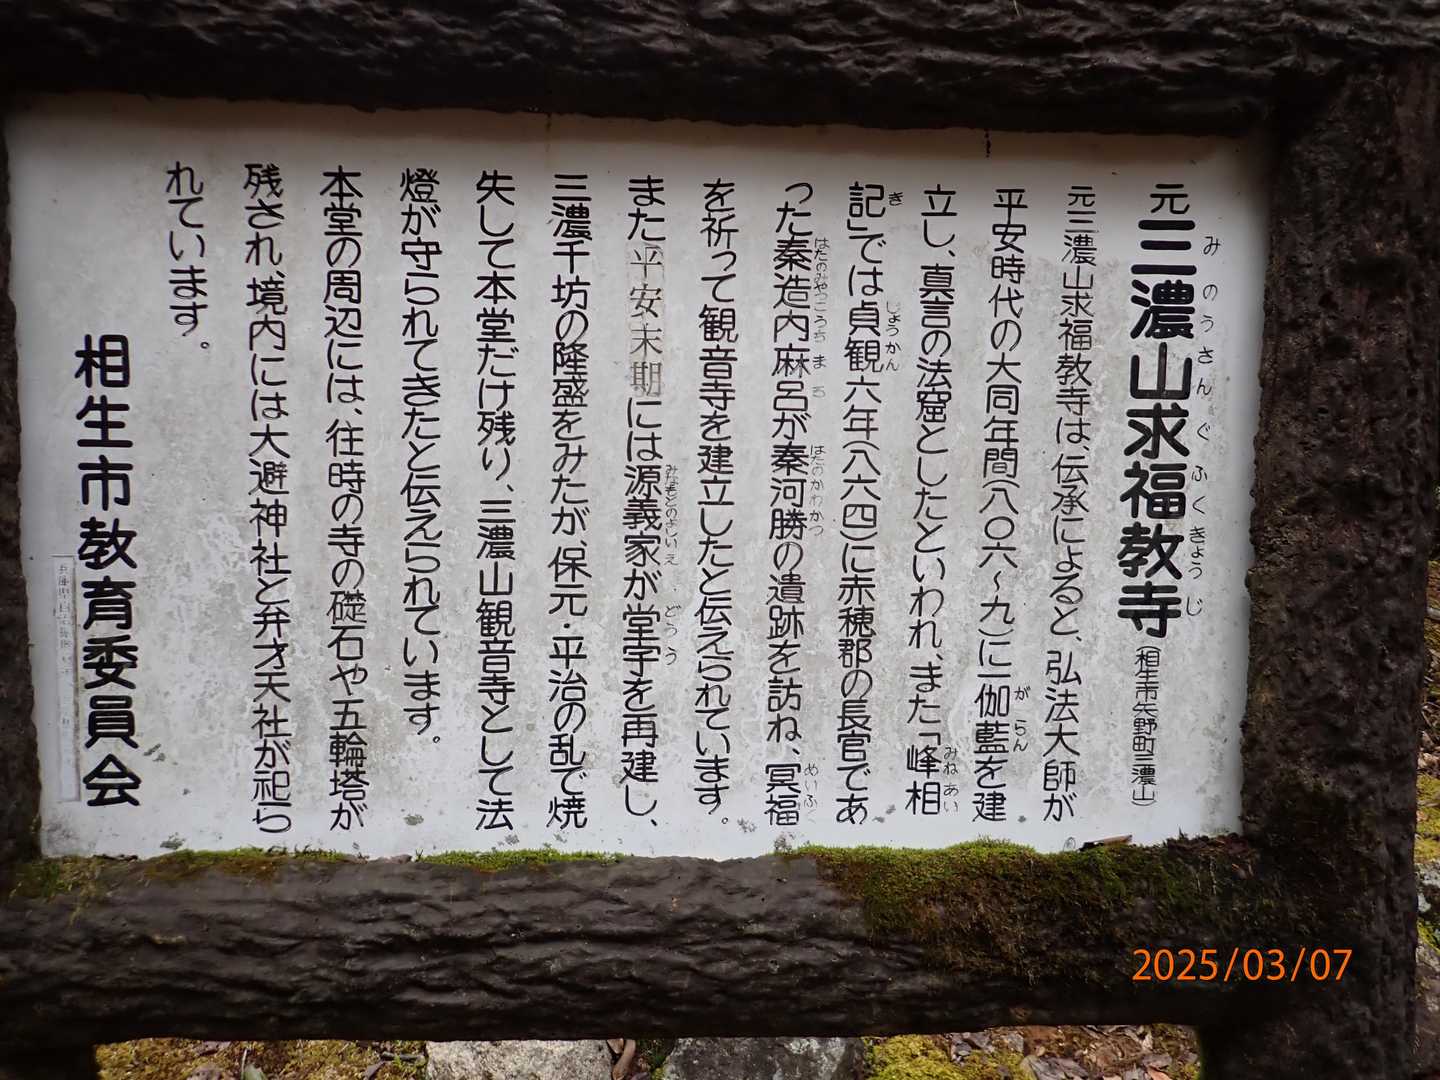 元三濃山求福教寺(相生市矢野町三濃山)
みのうさんぐふくきょうじ
元三濃山求福教寺は、伝承によると、弘法大師が
平安時代の大同年間(八〇六〜九)に伽藍を建
がらん
立し、真言の法窟としたといわれ、また「峰相
みねあい
記」では貞観六年(八六四)に赤穂郡の長官であ
き じょうかん
った秦造内麻呂が秦河勝の遺跡を訪ね、冥福
はたのみやつこうちまろ はたのかわかつ めいふく
を祈って観音寺を建立したと伝えられています。
また平安末期には源義家が堂宇を再建し、
みなもとのよしいえ どうう
三濃千坊の隆盛をみたが、保元・平治の乱で焼
失して本堂だけ残り、三濃山観音寺として法
燈が守られてきたと伝えられています。
本堂の周辺には、往時の寺の礎石や五輪塔が
残され、境内には大避神社と弁才天社が祀ら
れています。
相生市教育委員会
2025/03/07